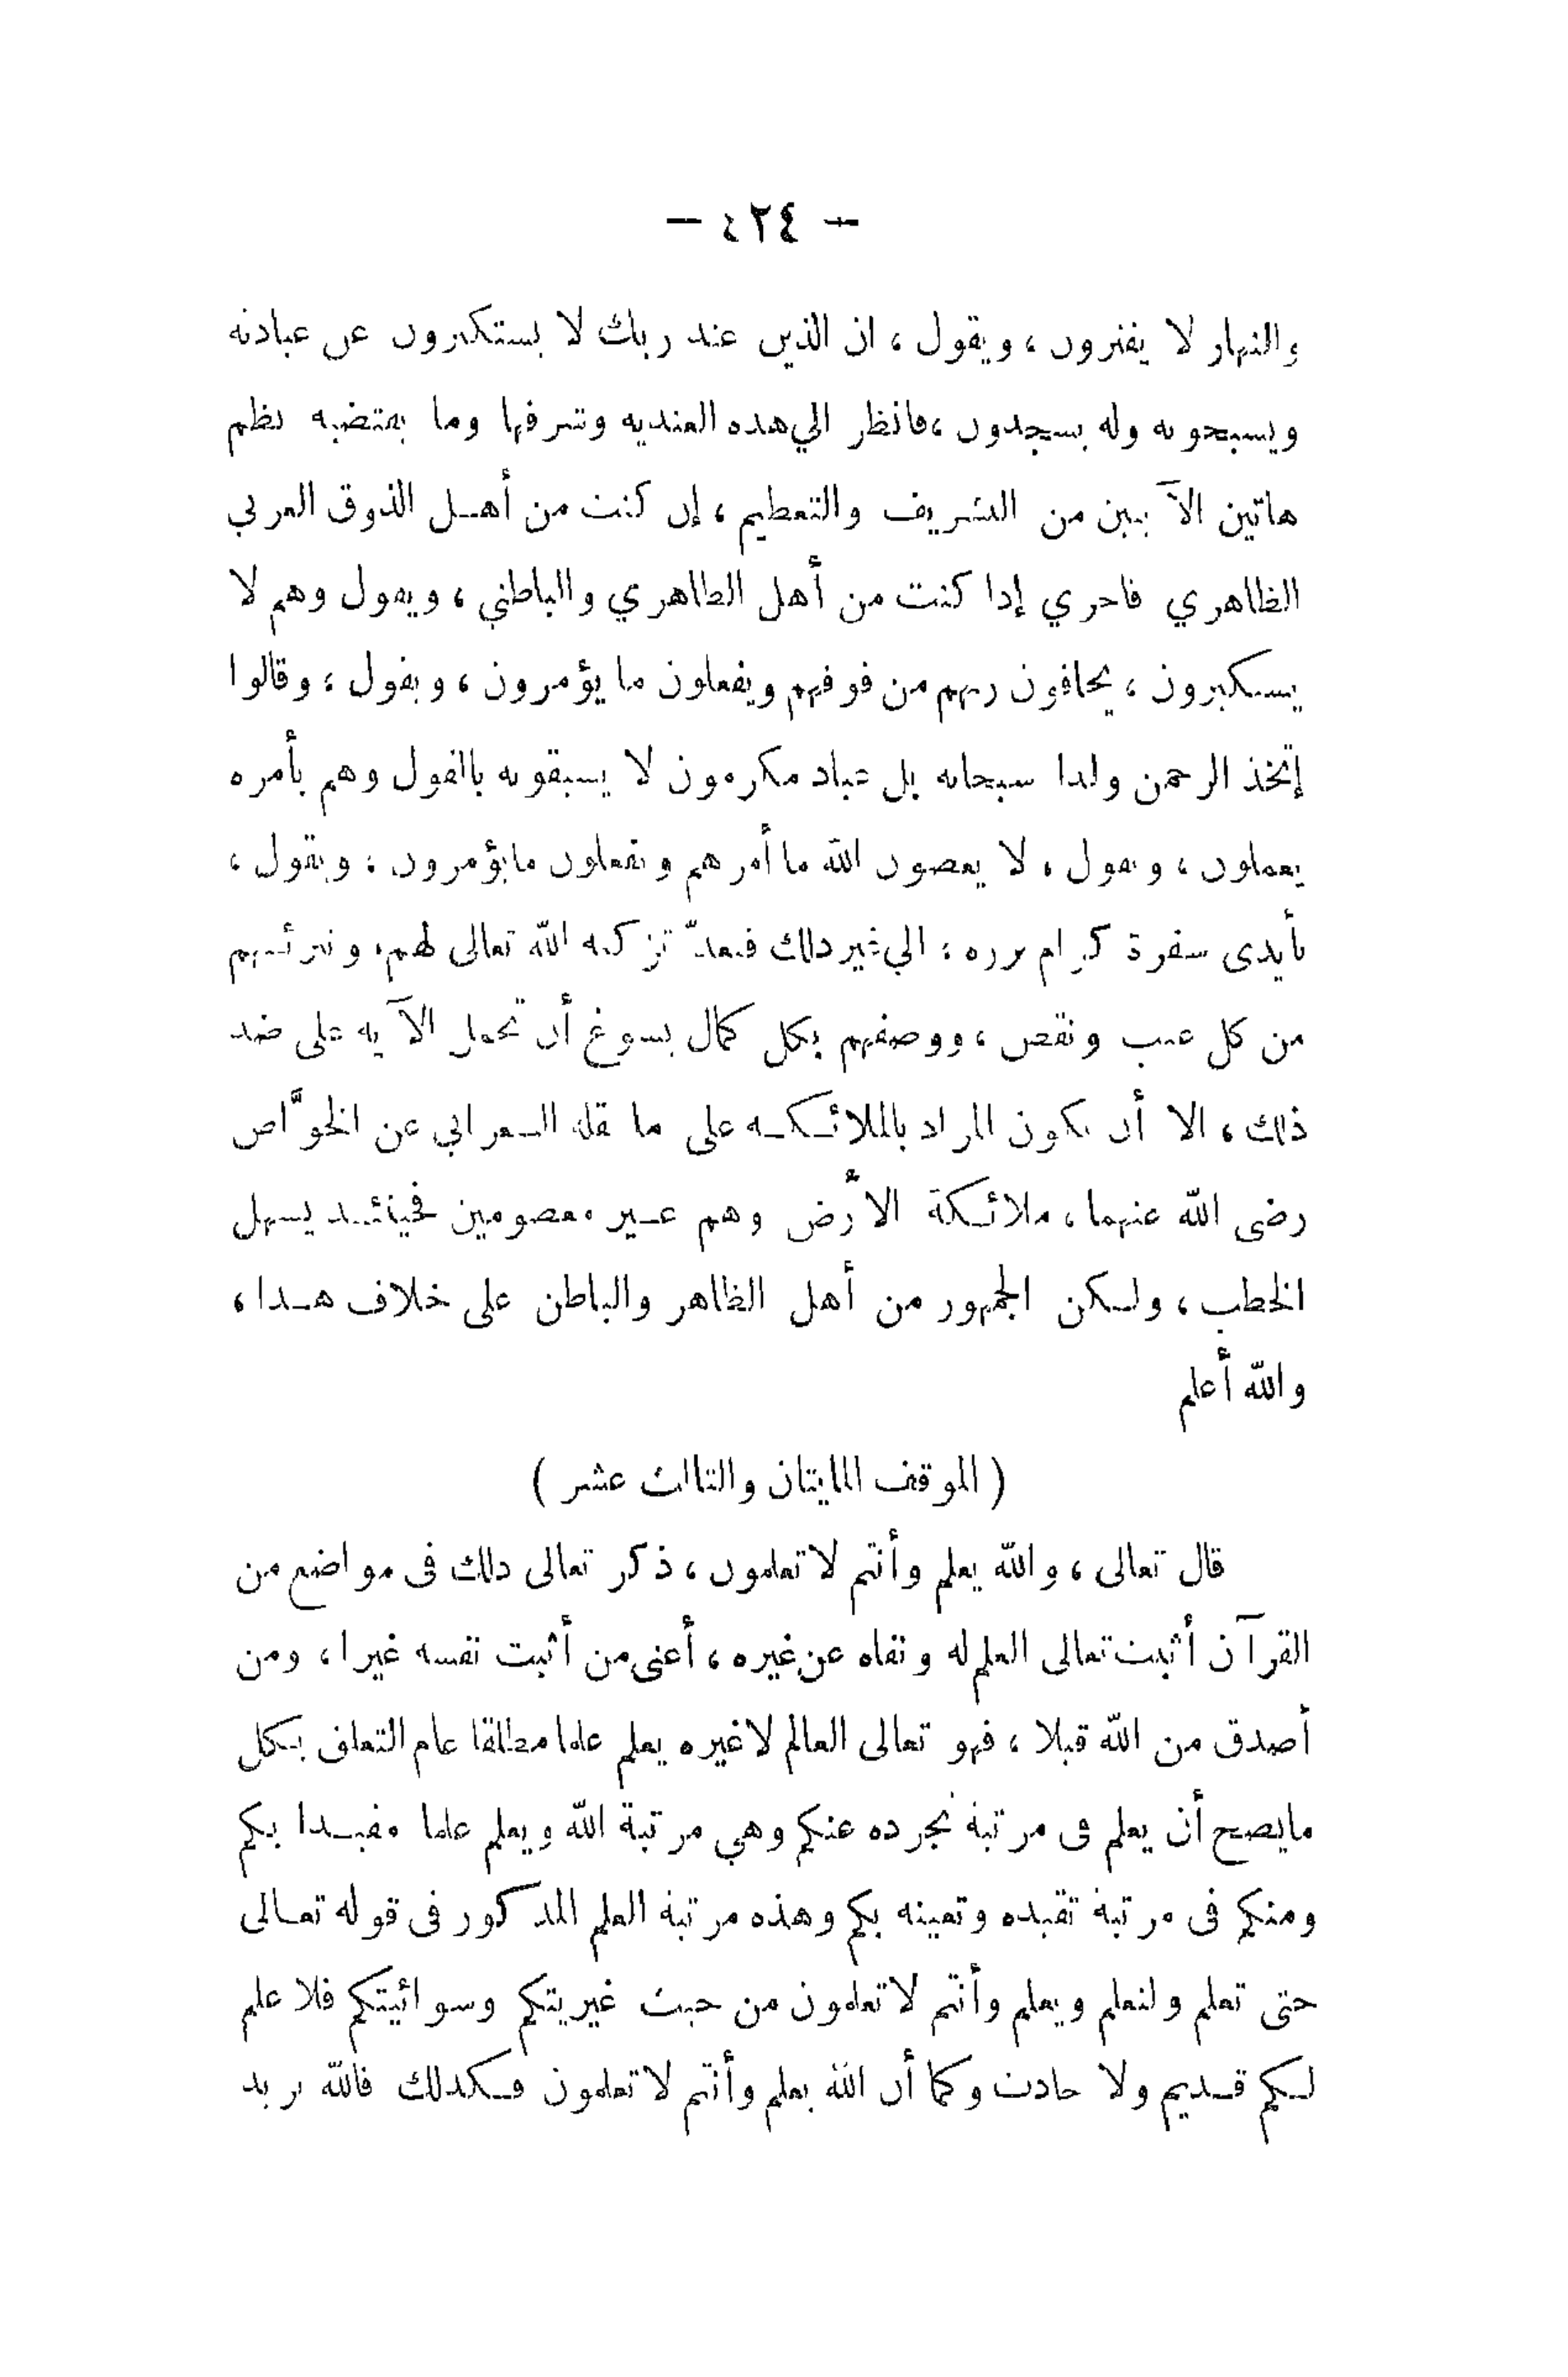 — ٤٢٤ —
والنهار لا يفترون ، ويقول ، ان الذين عند ربك لا يستكبرون عن عبادته
ويسبحونه وله يسجدون ، فانظر الي هذه العنديه وشرفها وما يقتضيه نظم
هاتين الآيتين من التشريف والتعظيم ، إن كنت من أهل الذوق العربي
الظاهري فاحري إذا كنت من أهل الظاهري والباطني ، ويقول وهم لا
يستكبرون ، يخافون ربهم من فوقهم ويفعلون ما يؤمرون ، ويقول ، وقالوا
إتخذ الرحمن ولدا سبحانه بل عباد مكرمون لا يسبقونه بالقول وهم بأمره
يعملون ، ويقول ، لا يعصون الله ما أمرهم ويفعلون ما يؤمرون ، ويقول ،
بأيدى سفرة كرام برره ، الي غير ذلك فبعدّ تزكيه الله تعالى لهم ، وتبرئتهم
من كل عيب ونقص ، ووصفهم بكل كمال يسوغ أن تحمل الآيه على ضد
ذلك ، الا أن يكون المراد بالملائكه على ما نقله الشعراني عن الخوَّاص
رضى الله عنهما ، ملائكة الأرض وهم غير معصومين فحينئذ يسهل
الخطب ، ولكن الجمهور من أهل الظاهر والباطن على خلاف هذا ،
والله أعلم
( الموقف المايتان والثالث عشر )
قال تعالى ، والله يعلم وأنتم لا تعلمون ، ذكر تعالى ذلك فى مواضع من
القرآن أثبت تعالى العلم له ونفاه عن غيره ، أعنى من أثبت نفسه غيرا ، ومن
أصدق من الله قيلا ، فهو تعالى العالم لا غيره يعلم علما مطلقا عام التعلق بكل
ما يصح أن يعلم فى مرتبة تجرده عنكم وهي مرتبة الله ويعلم علما مقيدا بكم
ومنكم فى مرتبة تقيده وتعينه بكم وهذه مرتبة العلم المذكور فى قوله تعالى
حتى نعلم ولنعلم ويعلم وأنتم لا تعلمون من حيث غيريتكم وسوائيتكم فلا علم
لكم قديم ولا حادث وكما أن الله يعلم وأنتم لا تعلمون فكذلك فالله يريد